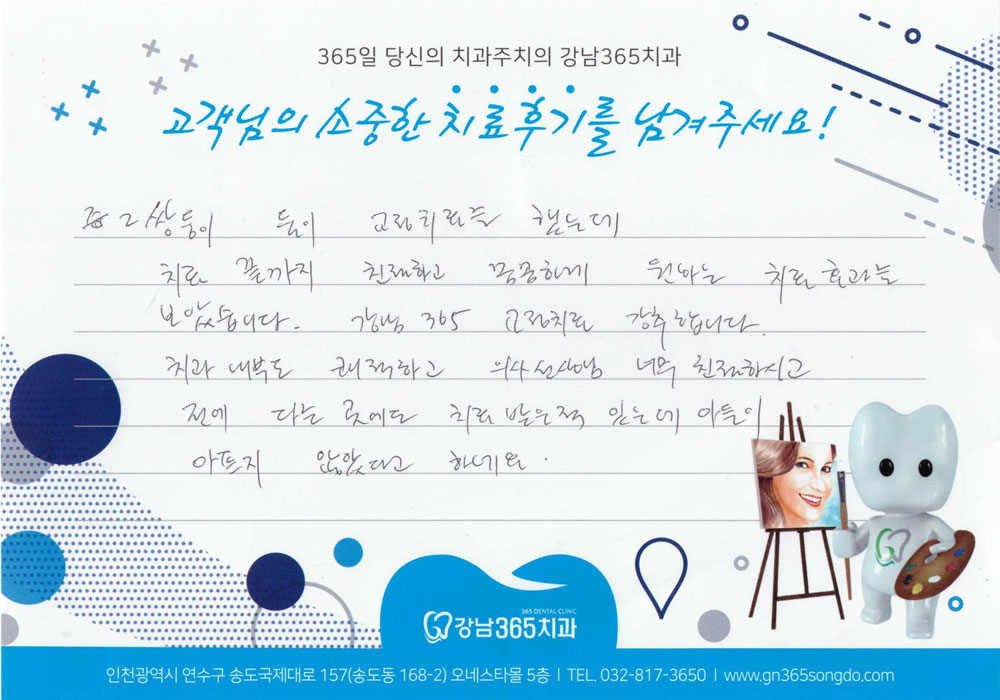 365일 당신의 치과주치의 강남365치과
고객님의 소중한 치료후기를 남겨주세요!
고2 쌍둥이 둘이 교정치료를 했는데
치료 끝까지 친절하고 꼼꼼하게 원하는 치료효과를
보았습니다. 강남 365 교정치료 강추합니다.
치과 내부도 쾌적하고 의사선생님 너무 친절하시고
전에 다른 곳에도 치료 받은적 있는데 아들이
아프지 않았다고 하네요.
365 DENTAL CLINIC
강남365치과
인천광역시 연수구 송도국제대로 157(송도동 168-2) 오네스타몰 5층 I TEL. 032-817-3650 I www.gn365songdo.com